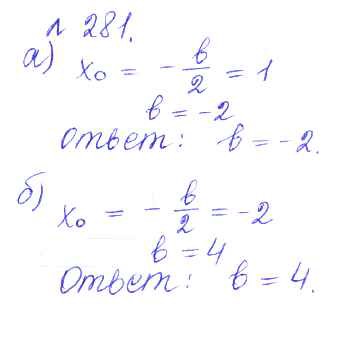 № 281.
а) x₀ = - b/2 = 1
b = -2
Ответ: b = -2.
б) x₀ = - b/2 = -2
b = 4
Ответ: b = 4.